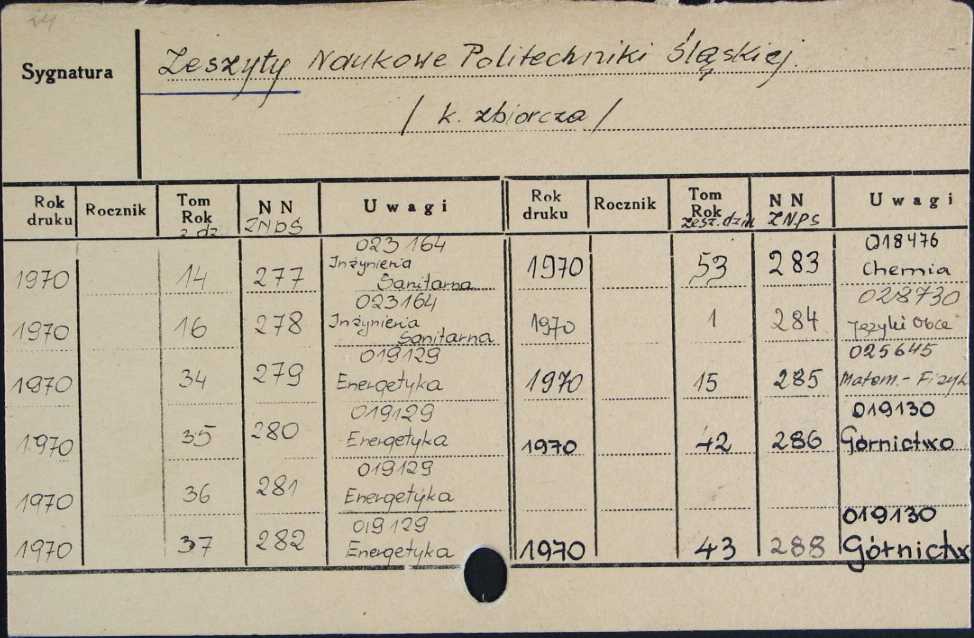 24
Sygnatura
Zeszyty Naukowe Politechniki Śląskiej.
/ k. zbiorcza /
Rok druku Rocznik Tom Rok z. dz. N N ZNPS Uwagi Rok druku Rocznik Tom Rok zesz. dzied N N ZNPS Uwagi
1970 14 277 023164 Inżynieria Sanitarna 1970 53 283 018476 Chemia
1970 16 278 023164 Inżynieria Sanitarna 1970 1 284 028730 Języki Obce
1970 34 279 019129 Energetyka 1970 15 285 025645 Matem.-Fizyk
1970 35 280 019129 Energetyka 1970 42 286 019130 Górnictwo
1970 36 281 019129 Energetyka
1970 37 282 019129 Energetyka 1970 43 288 019130 Górnictw